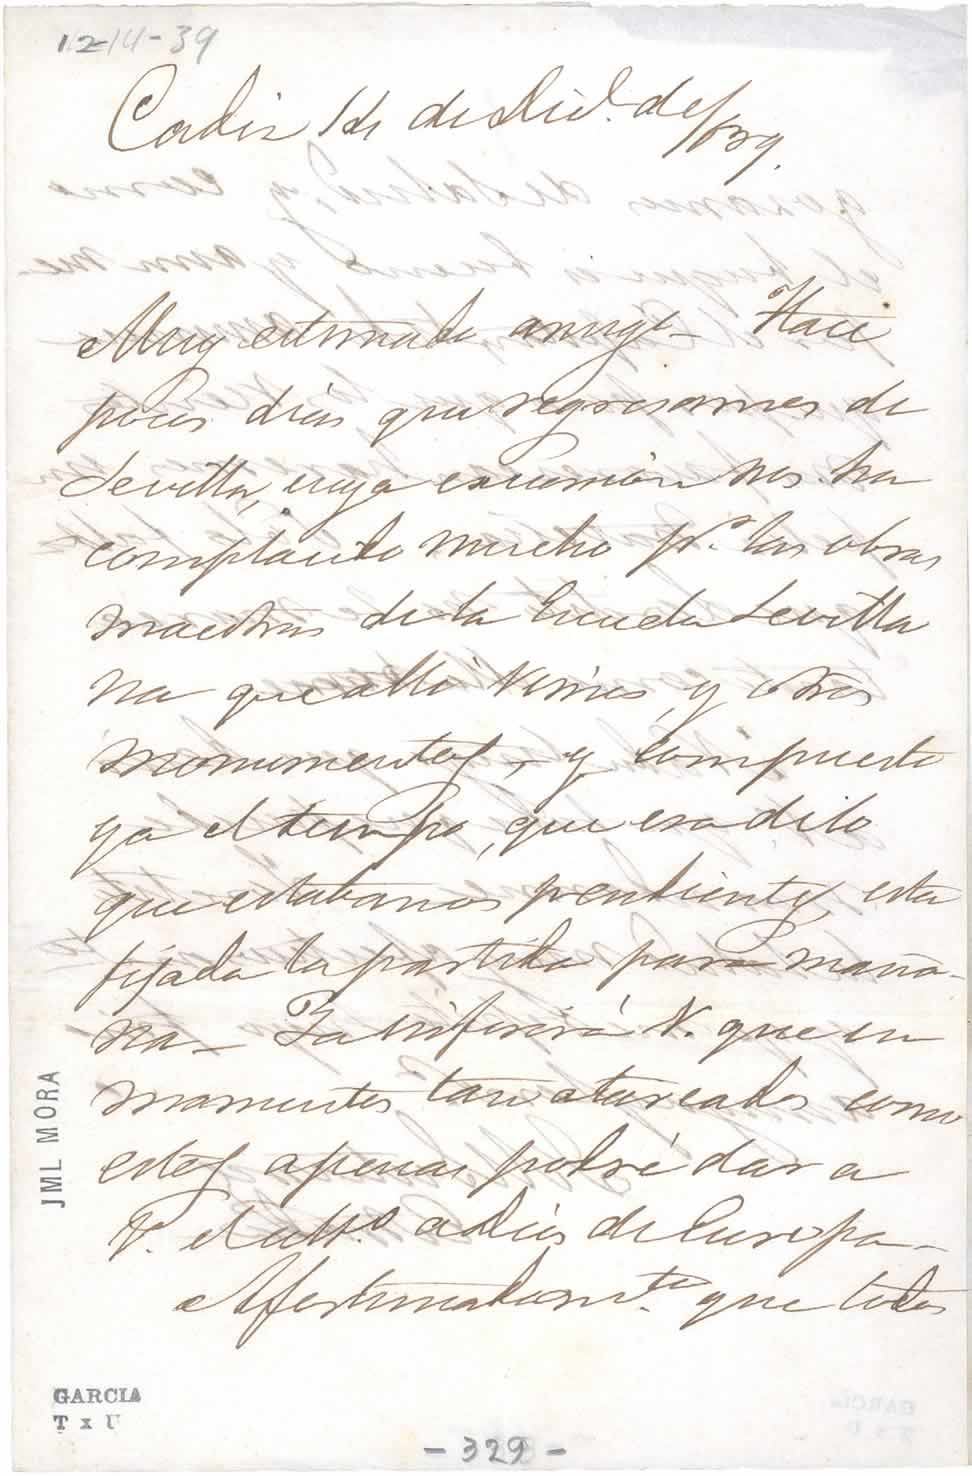 12-14-39
Cadiz 14 de Dic.e de /839.
Muy estimado amigo - Hace
pocos dias que regresamos de
Sevilla, cuya excursión nos ha
complacido mucho pr. las obras
maestras de la Escuela Sevilla
na que alli vimos, y otros
monumentos, - y compuesto
ya el tiempo, que era de lo
que estabamos pendientes, esta
fijada la partida para maña-
na - Ya inferirá V. que en
momentos tan atareados como
estos apenas podré dar a
V. el ultº. adios de Europa -
Afortunadamte. que todos
JML MORA
GARCIA
T x U
- 329 -